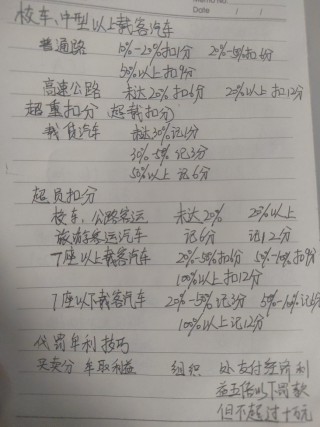 Memo No.
Date / /
校车、中型以上载客汽车
普通路 10%-20%扣1分 20%-50%扣6分
50%以上扣9分
高速公路 未达20%扣6分 20%以上扣12分
超重扣分(超载扣分)
载货汽车 未达30%记1分
30%-50%记3分
50%以上记6分
超员扣分
校车、公路客运 未达20% 20%以上
旅游客运汽车 记6分 记12分
7座以上载客汽车 20%-50%扣6分 50%-100%扣9分
100%以上扣12分
7座以下载客汽车 20%-50%记3分 50%-100%记6分
100%以上记12分
代罚牟利技巧
买卖分 牟取利益 组织 处支付经济利
益五倍以下罚款
但不超过十万元